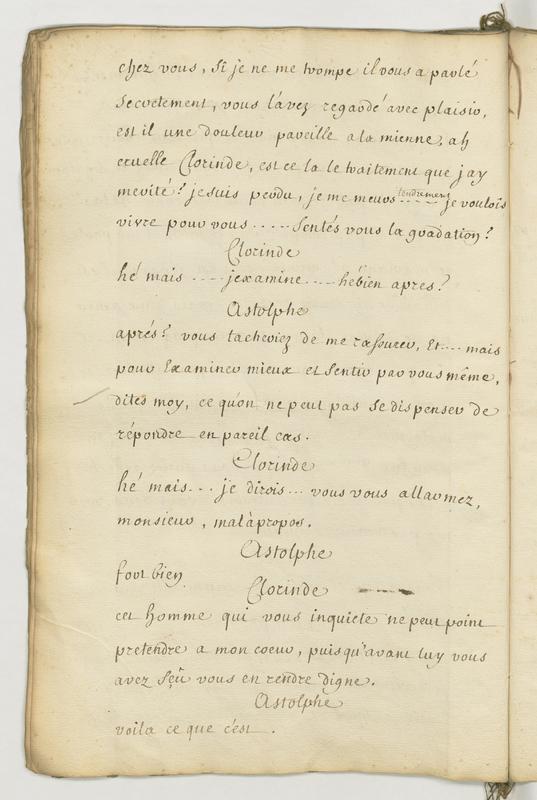 chez vous, si je ne me trompe il vous a parlé
secretement, vous l'avez regardé avec plaisir,
est il une douleur pareille a la mienne, ah
cruelle Clorinde, est ce la le traitement que jay
merité? je suis perdu, je me meurs tendrement ..... je voulois
vivre pour vous ..... sentés vous la gradation?
Clorinde
hé mais .... jexamine .... hébien apres?
Astolphe
aprés? vous tacheriez de me rassurer, Et .... mais
pour Examiner mieux et sentir par vous même,
dites moy, ce qu'on ne peut pas se dispenser de
répondre en pareil cas.
Clorinde
hé mais... je dirois... vous vous allarmez,
monsieur, mal à propos.
Astolphe
fort bien
Clorinde
cet homme qui vous inquiete ne peut point
pretendre a mon coeur, puisqu'avant luy vous
avez sçû vous en rendre digne.
Astolphe
voila ce que c'est.